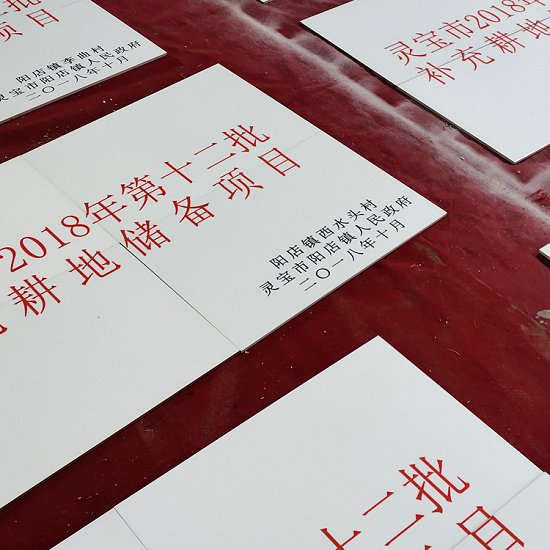 项目
阳店镇李曲村
灵宝市阳店镇人民政府
二〇一八年十月
灵宝市2018年
补充耕地
2018年第十二批
耕地储备项目
阳店镇西水头村
灵宝市阳店镇人民政府
二〇一八年十月
十二批
项目